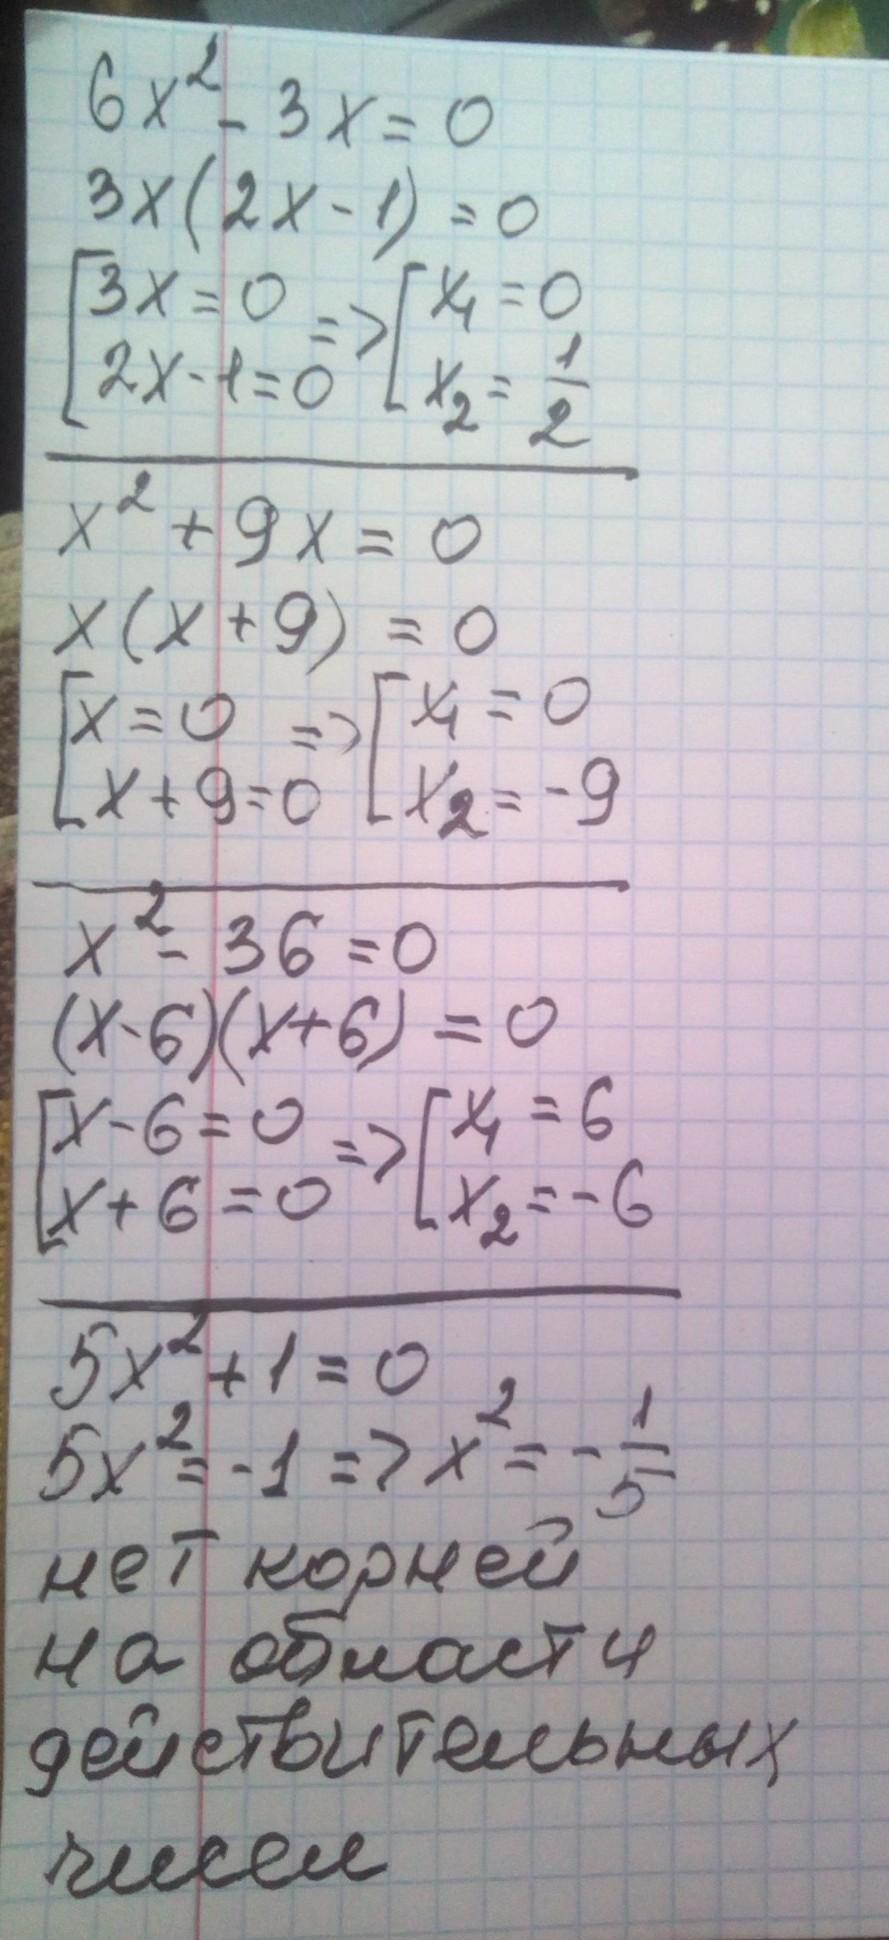 6x² - 3x = 0
3x(2x - 1) = 0
[3x = 0 => [x₁ = 0
2x - 1 = 0 x₂ = 1/2
x² + 9x = 0
x(x + 9) = 0
[x = 0 => [x₁ = 0
x + 9 = 0 x₂ = -9
x² - 36 = 0
(x - 6)(x + 6) = 0
[x - 6 = 0 => [x₁ = 6
x + 6 = 0 x₂ = -6
5x² + 1 = 0
5x² = -1 => x² = - 1/5
нет корней
на области
действительных
чисел